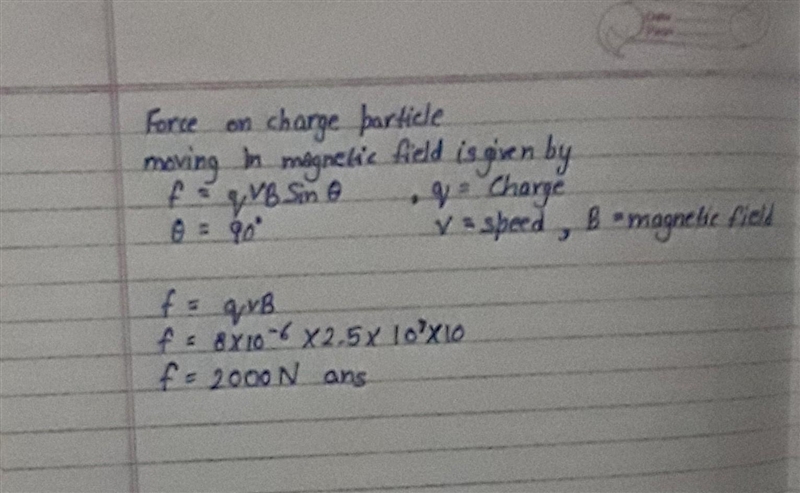 Date
Page
Force on charge particle
moving in magnetic field is given by
f = qVB Sin θ , q = Charge
θ = 90° V = speed, B = magnetic field
f = qvB
f = 8×10⁻⁶ × 2.5 × 10⁷ × 10
f = 2000 N ans